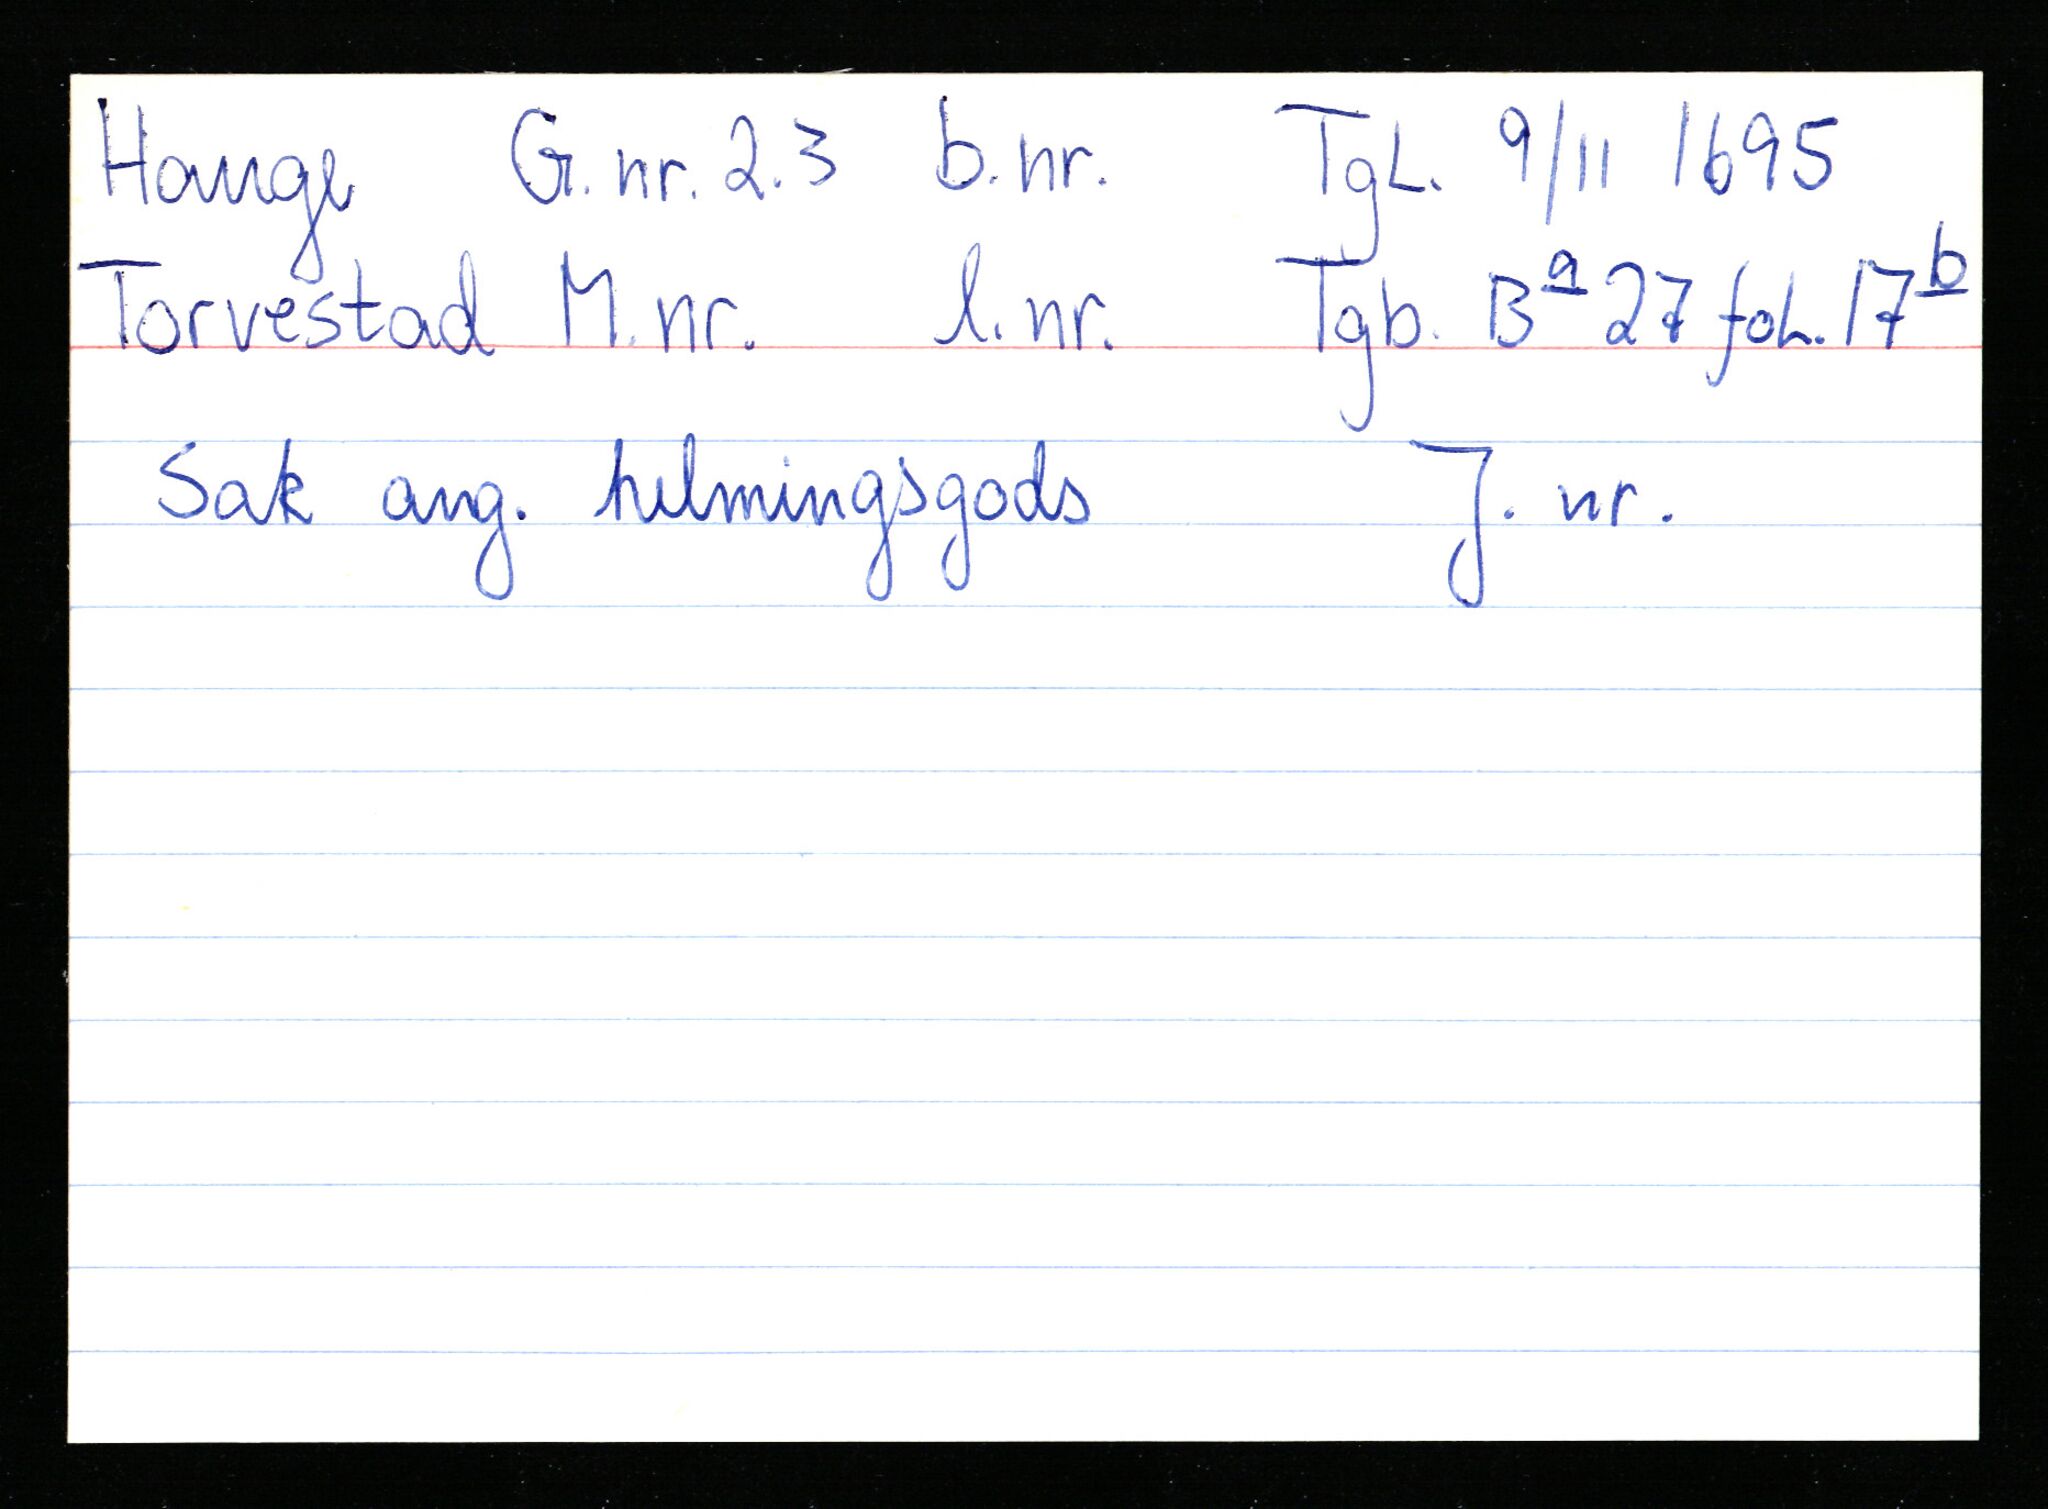 Hauge G.nr. 2.3 b.nr. Tgl. 9/11 1695
Torvestad M.nr. l.nr. Tgb. Bª 27 fol. 17ᵇ
Sak ang. helmingsgods J. nr.